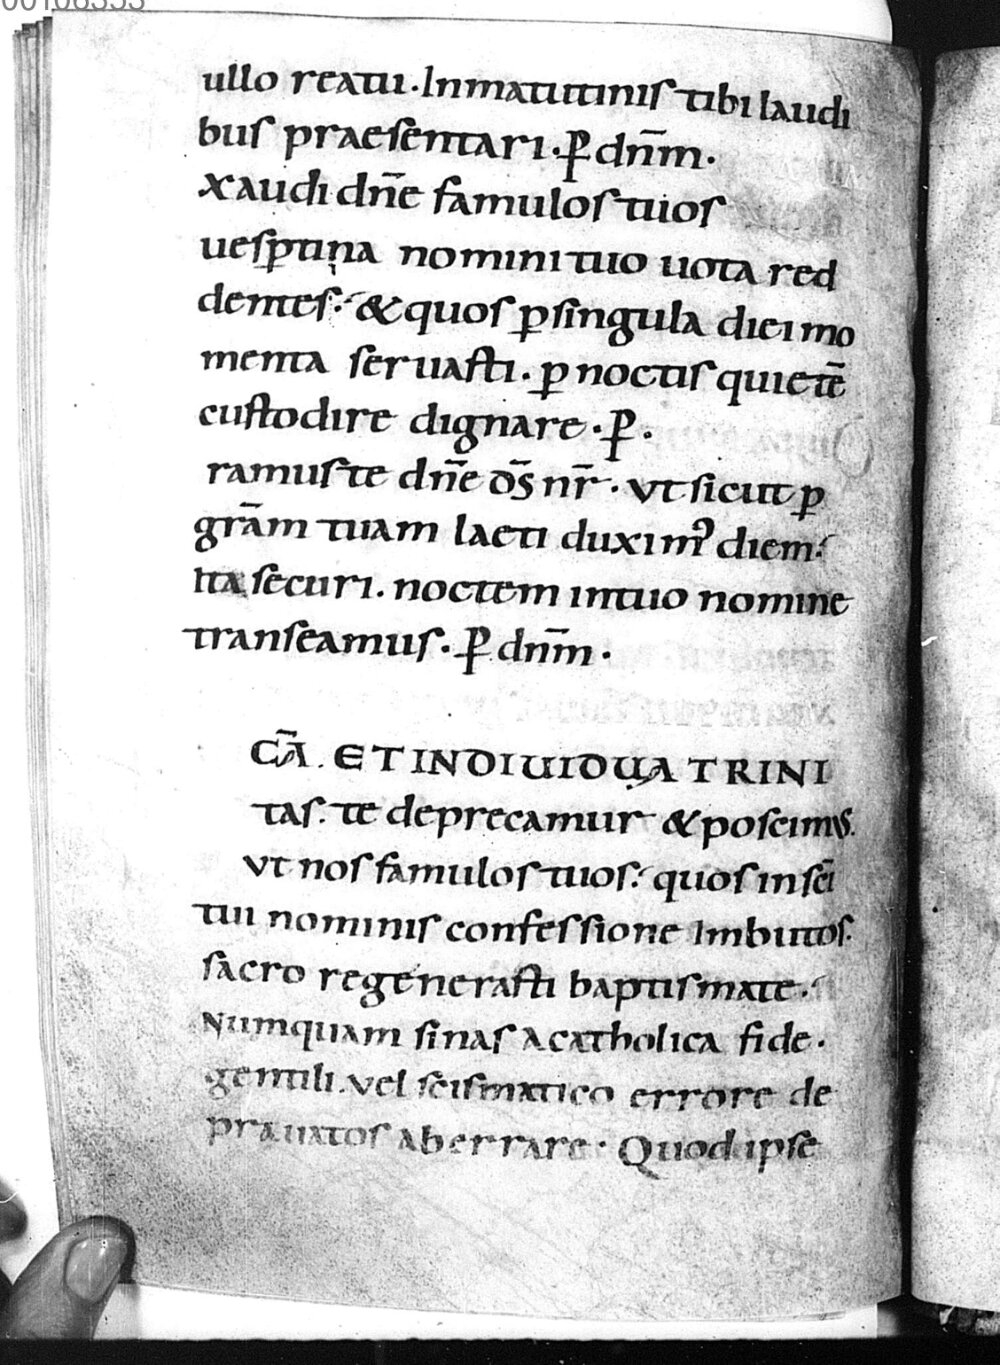 00108353
ullo reatu. Inmatutinis tibi laudi
bus praesentari. ꝑ dn̄m.
xaudi dn̄e famulos tuos
uesꝑtina nomini tuo uota red
dentes. & quos ꝑ singula diei mo
menta seruasti. ꝑ noctis quietē
custodire dignare. ꝑ.
ramus te dn̄e d̄s nr̄. vt sicut ꝑ
gr̄am tuam laeti duximꝰ diem.
Ita securi. noctem intuo nomine
transeamus. ꝑ dn̄m.
C̄A. ET INDIUIDUA TRINI
tas. te deprecamur & poscimus.
vt nos famulos tuos. quos in sc̄i
tui nominis confessione Imbutos.
sacro regenerasti baptismate.
Numquam sinas a catholica fide.
gentili. vel scismatico errore de
prauatos aberrare. Quod ipse